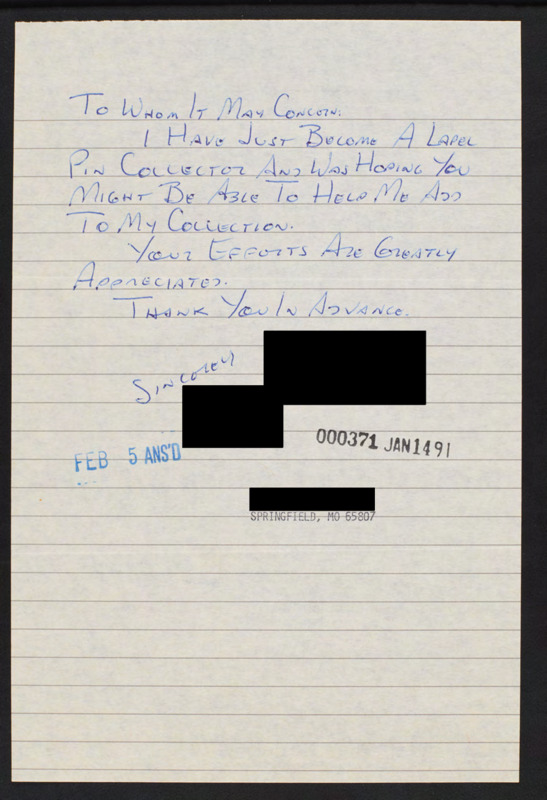 To Whom It May Concern:
I Have Just Become A Lapel
Pin Collector And Was Hoping You
Might Be Able To Help Me Add
To My Collection.
Your Efforts Are Greatly
Appreciated.
Thank You In Advance.
Sincerely
000371 JAN 14 91
FEB 5 ANS'D
SPRINGFIELD, MO 65807